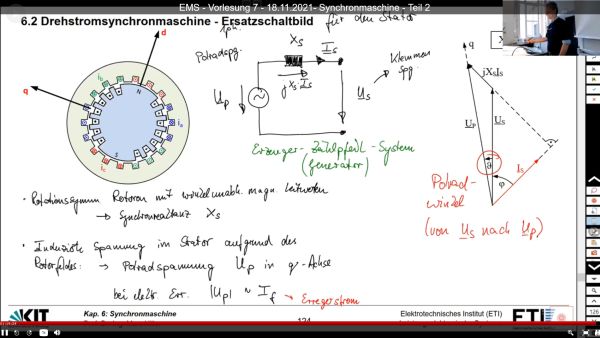 EMS - Vorlesung 7 - 18.11.2021- Synchronmaschine - Teil 2
6.2 Drehstromsynchronmaschine - Ersatzschaltbild
1ph.
für den Stator
d
q
N
S
Polradspg.
X_S
I_S
jX_S I_S
U_P
U_S
Klemmen
spg.
Erzeuger-Zählpfeil-System
(Generator)
q
jX_S I_S
U_P
U_S
ϑ
φ
I_S
Polrad-
winkel
(von U_S nach U_P)
• Rotationssymm Rotoren mit winkelunabh. magn. Leitwerten
→ Synchronreaktanz X_S
• Induzierte Spannung im Stator aufgrund des
Rotorfeldes: → Polradspannung U_P in q-Achse
bei elektr. Err. |U_P| ~ I_f → Erregerstrom
KIT
Kap. 6: Synchronmaschine
Elektrotechnisches Institut (ETI)
ETI